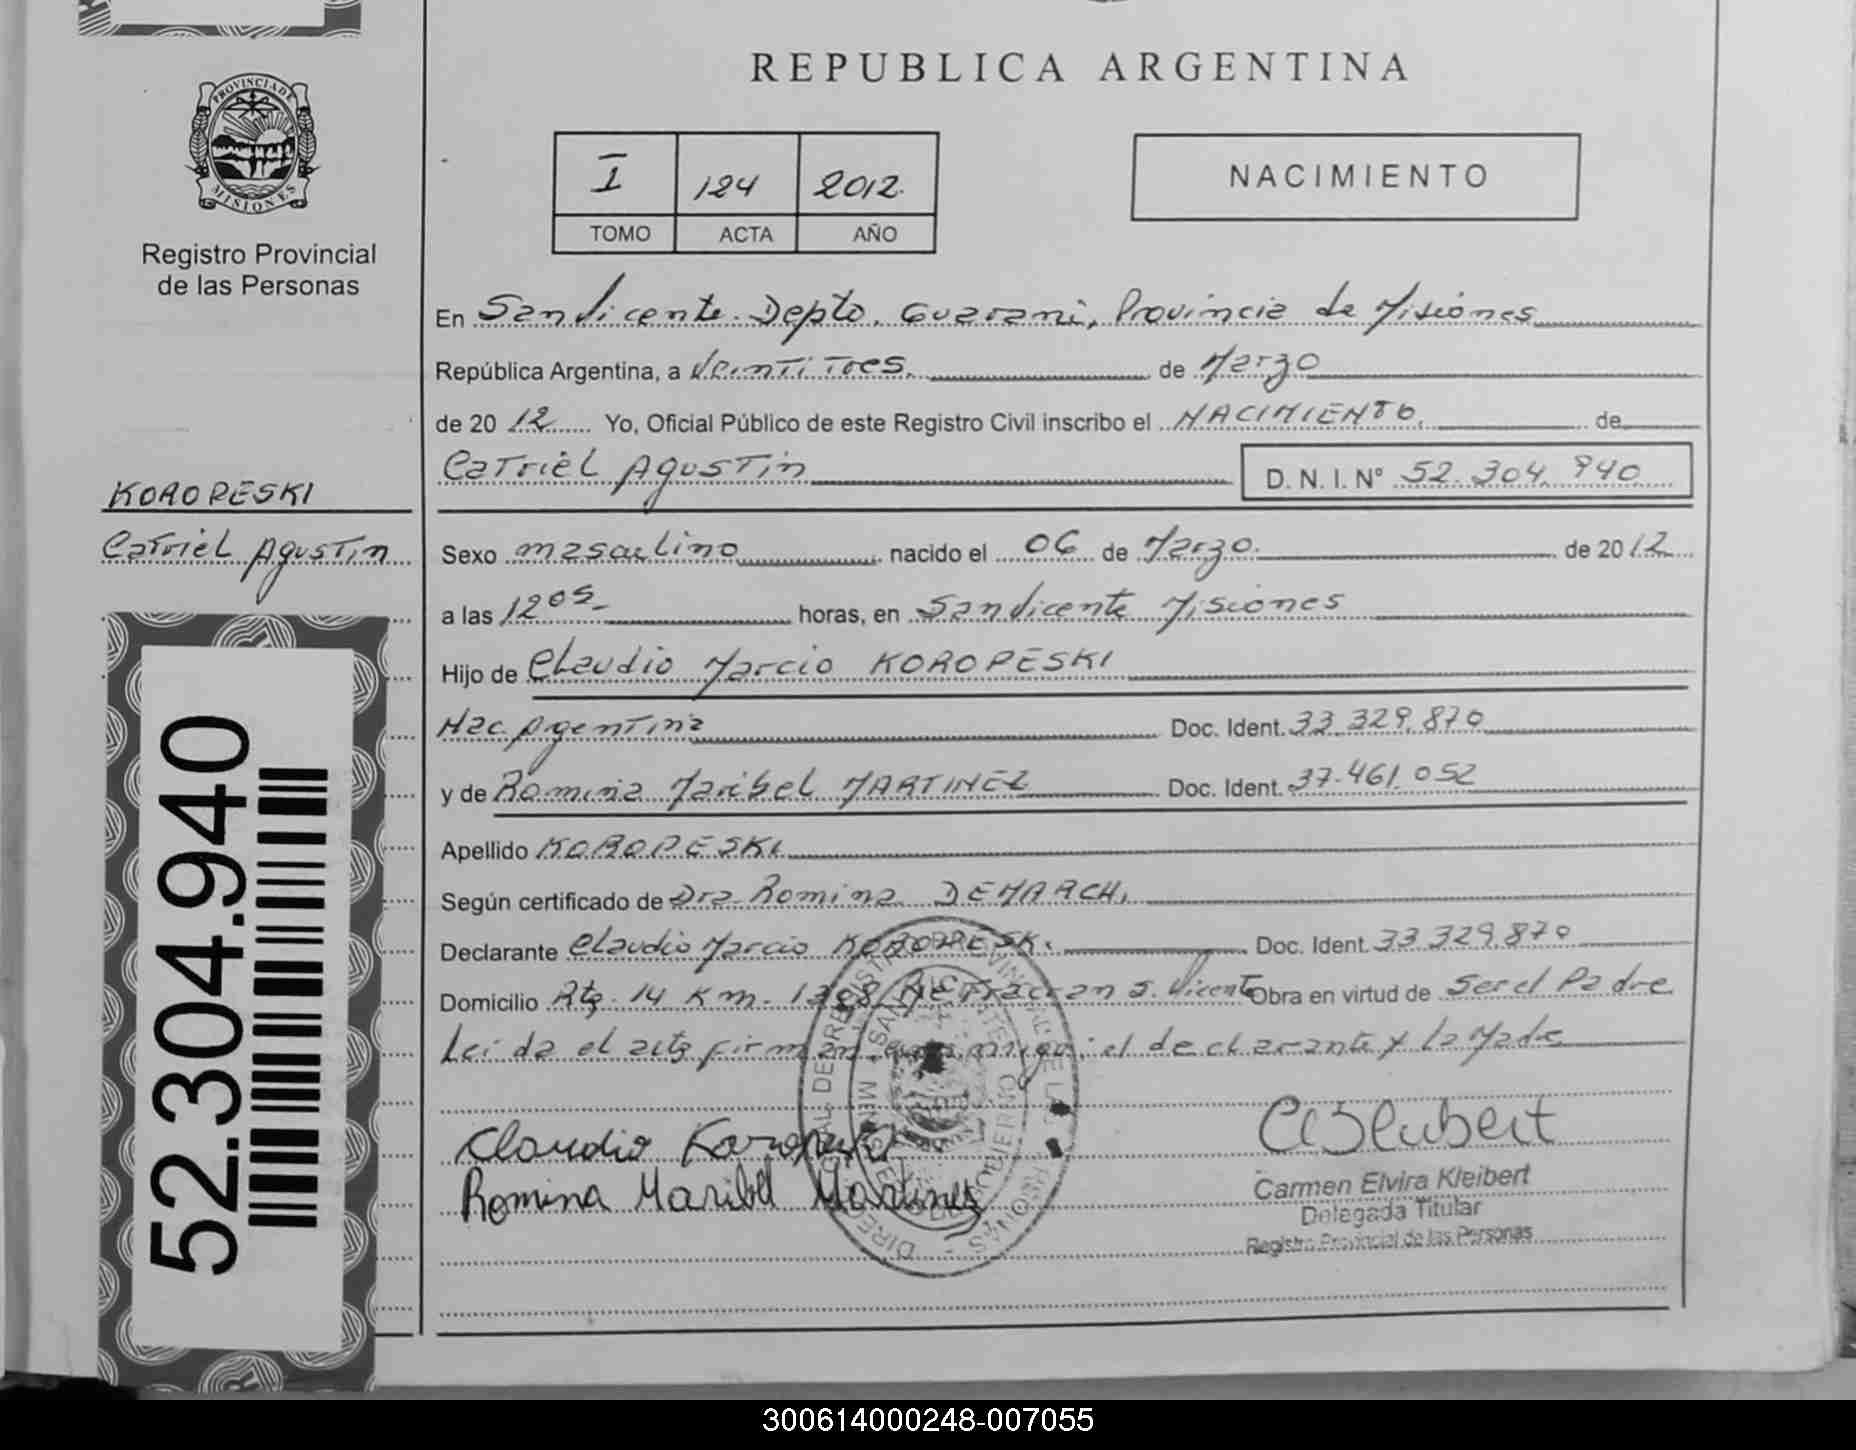 PROVINCIA DE
MISIONES
Registro Provincial
de las Personas
KOROPESKI
Catriel Agustin
52.304.940
REPUBLICA ARGENTINA
I 124 2012.
TOMO ACTA AÑO
NACIMIENTO
En San Vicente. Depto. Guarani, Provincia de Misiones
República Argentina, a Veinti Tres. de Marzo
de 2012 Yo, Oficial Público de este Registro Civil inscribo el NACIMIENTO. de
Catriel Agustin D. N. I. Nº 52.304.940
Sexo masculino nacido el 06 de Marzo. de 2012
a las 12 05 horas, en San Vicente Misiones
Hijo de Claudio Marcio KOROPESKI
Nac. Agentina Doc. Ident. 33.329.870
y de Romina Maribel MARTINEZ Doc. Ident. 37.461.052
Apellido KOROPESKI
Según certificado de Dra. Romina DEMARCHI
Declarante Claudio Marcio KOROPESKI Doc. Ident. 33 329.870
Domicilio Rta. 14 Km. Fracran S. Vicente Obra en virtud de Ser el Padre
Leida el acta firman conmigo: el declarante y la Madre
Claudio Koropeski
Romina Maribel Martinez
Carmen Elvira Kleibert
Delegada Titular
Registro Provincial de las Personas
300614000248-007055